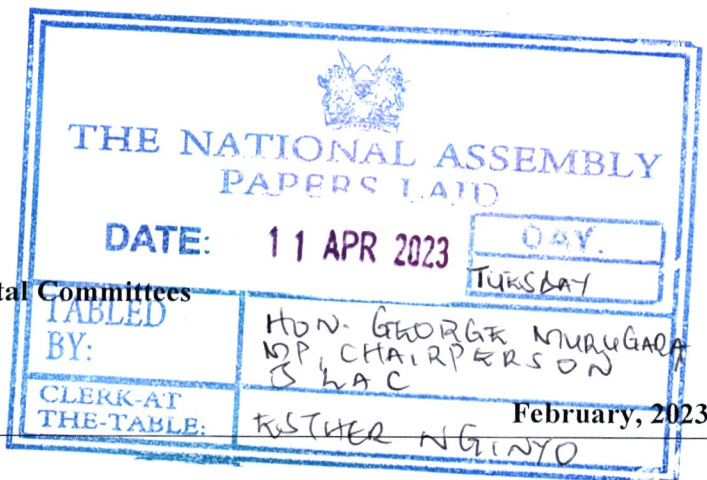 THE NATIONAL ASSEMBLY
PAPERS LAID
DATE: 11 APR 2023 DAY.
TUESDAY
tal Committees
TABLED
BY:
HON. GEORGE MURUGARA
MP, CHAIRPERSON
JLAC
CLERK-AT
THE-TABLE:
ESTHER NGINYO
February, 2023